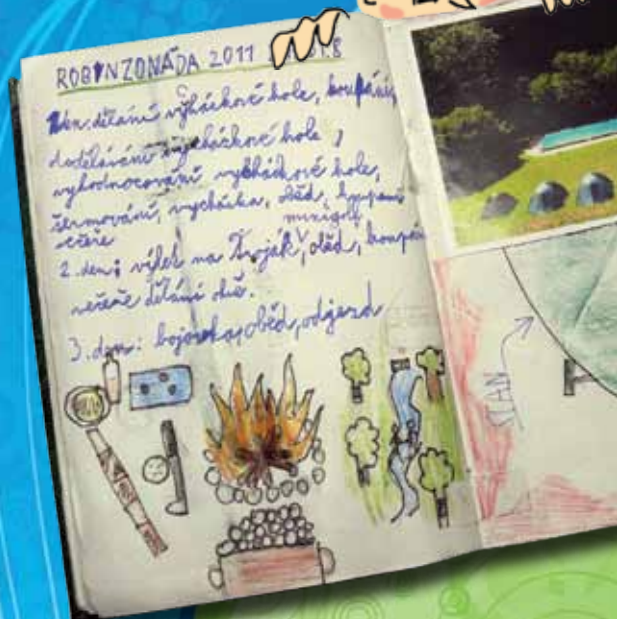 ROBINZONÁDA 2011
1 den: dělání vycházkové hole, koupání,
dodělávání vycházkové hole,
vyhodnocování vycházkové hole,
šermování, vycházka, oběd, koupání
minigolf
večeře
2. den: výlet na Troják, oběd, koupání
večeře dělání
3. den: bojovka, oběd, odjezd